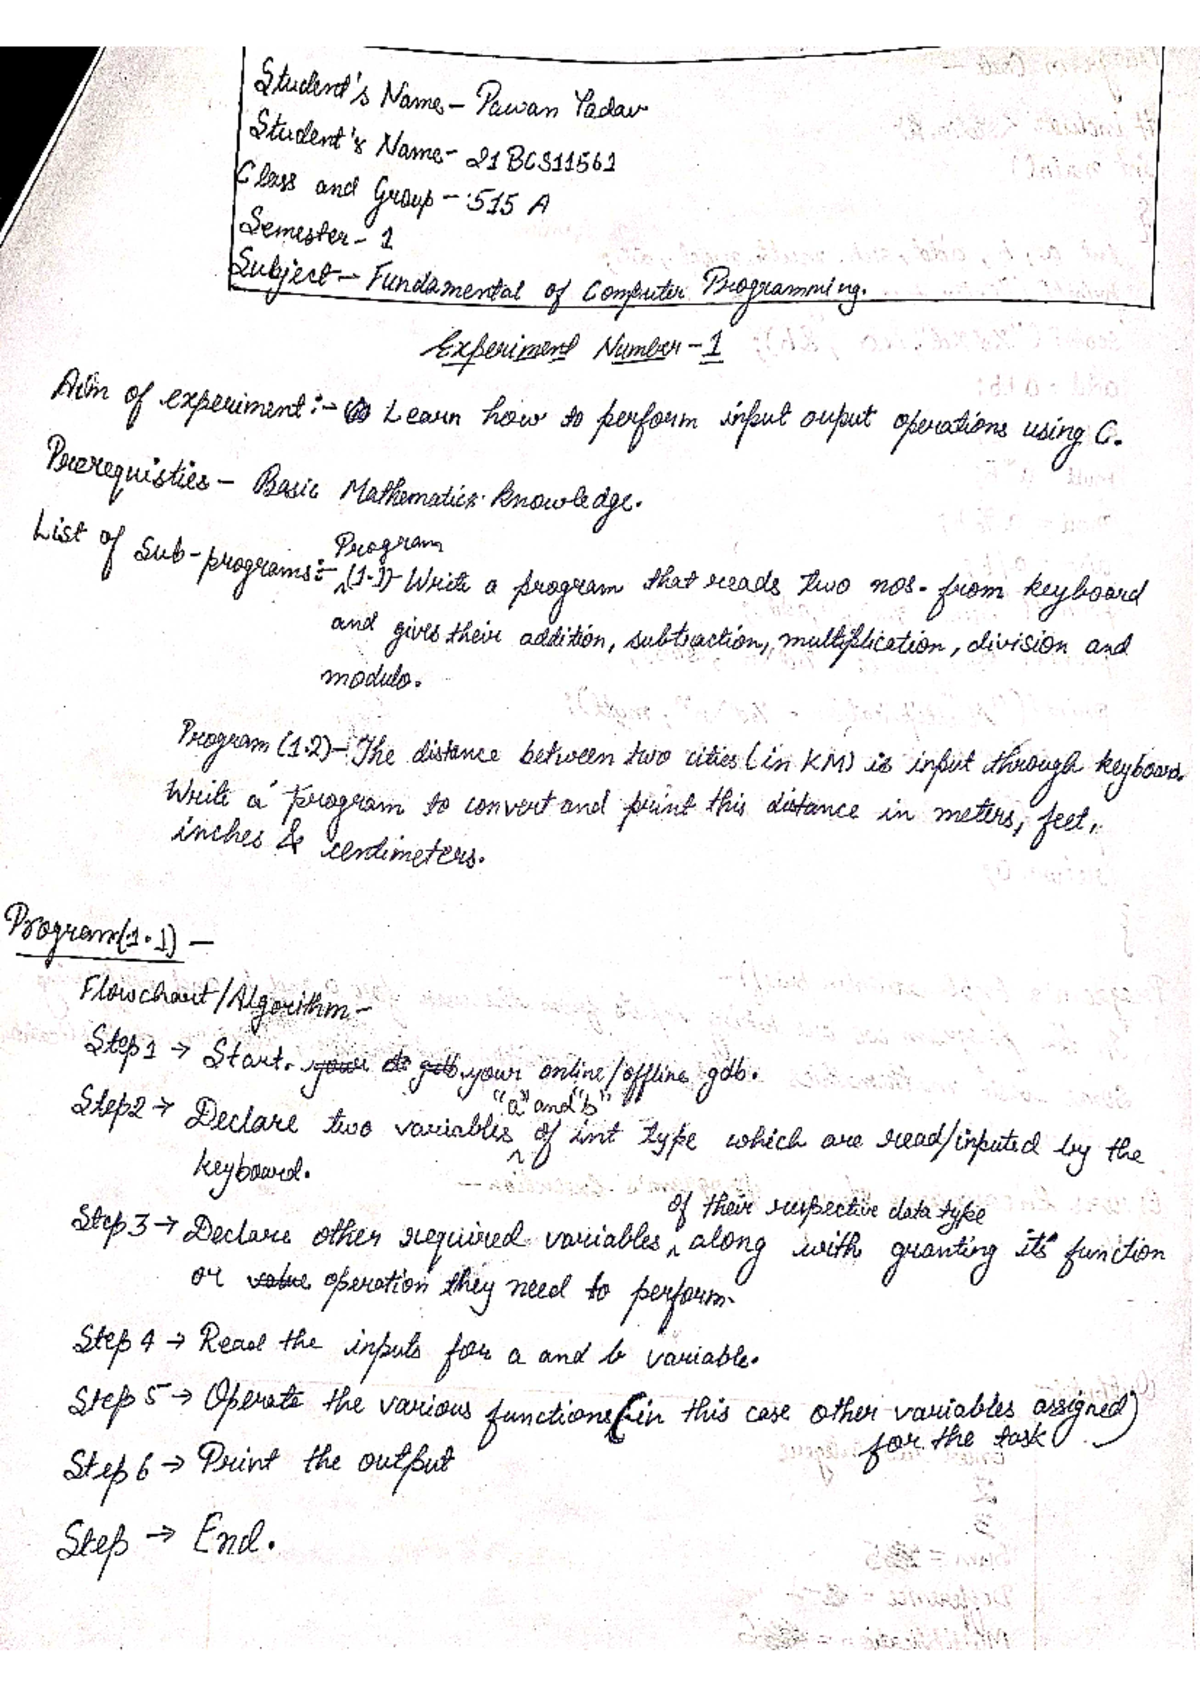 Student's Name - Pawan Yadav
Student's Name - 21BCS11561
Class and Group - 515 A
Semester - 1
Subject - Fundamental of Computer Programming.
Experiment Number - 1
Aim of experiment:- Learn how to perform input ouput operations using C.
Prerequisties - Basic Mathematics knowledge.
List of Sub-programs:- Program (1.1) - Write a program that reads two nos. from keyboard
and gives their addition, subtraction, multiplication, division and
modulo.
Program (1.2) - The distance between two cities (in KM) is input through keyboard.
Write a program to convert and print this distance in meters, feet,
inches & centimeters.
Program(1.1) -
Flowchart/Algorithm -
Step 1 → Start. your gdb your online/offline gdb.
Step 2 → Declare two variables "a" and "b" of int type which are read/inputed by the
keyboard.
Step 3 → Declare other required variables of their respective data type along with granting its function
or value operation they need to perform.
Step 4 → Read the inputs for a and b variable.
Step 5 → Operate the various functions (in this case other variables assigned
for the task)
Step 6 → Print the output
Step → End.